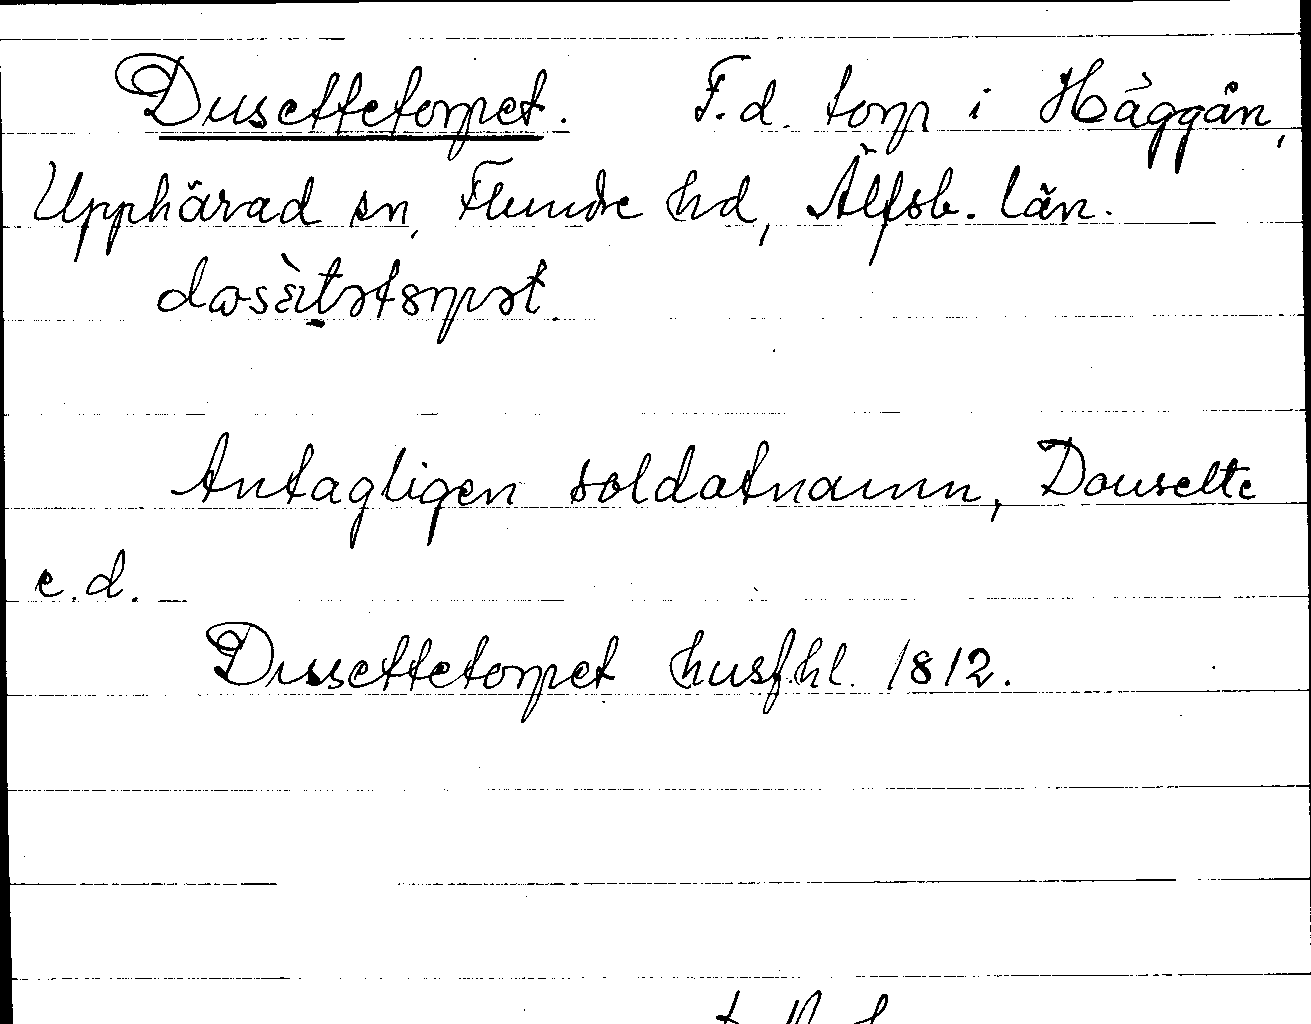 Dusettetorpet. F.d. torp i Häggån,
Upphärad sn, Flundre hd, Älfsb. län.
Antagligen soldatnamn, Dousette
e.d.
Dussettetorpet husf.hl. 1812.